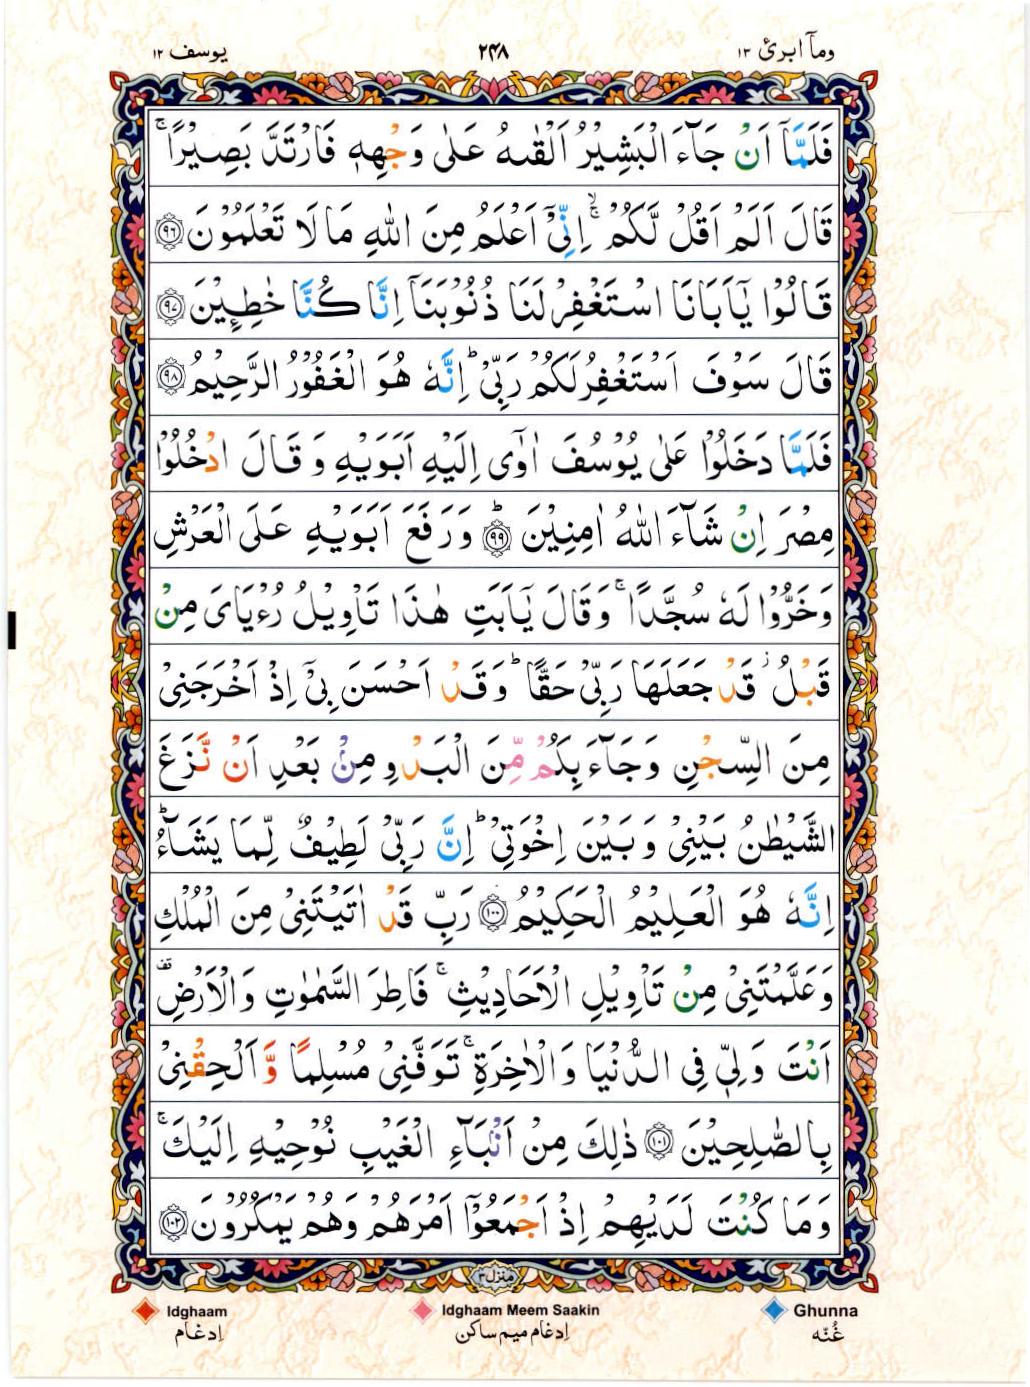 وماۤ ابرئ ۱۳
۲۴۸
یوسف ۱۲
فَلَمَّاۤ اَنْ جَآءَ الْبَشِیْرُ اَلْقٰىهُ عَلٰى وَجْهِهٖ فَارْتَدَّ بَصِیْرًا ۚ
قَالَ اَلَمْ اَقُلْ لَّكُمْ ۚۙ اِنِّیْۤ اَعْلَمُ مِنَ اللّٰهِ مَا لَا تَعْلَمُوْنَ ﴿۹۶﴾
قَالُوْا یٰۤاَبَانَا اسْتَغْفِرْ لَنَا ذُنُوْبَنَاۤ اِنَّا كُنَّا خٰطِـِٕیْنَ ﴿۹۷﴾
قَالَ سَوْفَ اَسْتَغْفِرُ لَكُمْ رَبِّیْ ؕ اِنَّهٗ هُوَ الْغَفُوْرُ الرَّحِیْمُ ﴿۹۸﴾
فَلَمَّا دَخَلُوْا عَلٰى یُوْسُفَ اٰوٰۤى اِلَیْهِ اَبَوَیْهِ وَ قَالَ ادْخُلُوْا
مِصْرَ اِنْ شَآءَ اللّٰهُ اٰمِنِیْنَ ﴿۹۹﴾ؕ وَ رَفَعَ اَبَوَیْهِ عَلَى الْعَرْشِ
وَ خَرُّوْا لَهٗ سُجَّدًا ۚ وَ قَالَ یٰۤاَبَتِ هٰذَا تَاْوِیْلُ رُءْیَایَ مِنْ
قَبْلُ ؗ قَدْ جَعَلَهَا رَبِّیْ حَقًّا ؕ وَ قَدْ اَحْسَنَ بِیْۤ اِذْ اَخْرَجَنِیْ
مِنَ السِّجْنِ وَ جَآءَ بِكُمْ مِّنَ الْبَدْوِ مِنْۢ بَعْدِ اَنْ نَّزَغَ
الشَّیْطٰنُ بَیْنِیْ وَ بَیْنَ اِخْوَتِیْ ؕ اِنَّ رَبِّیْ لَطِیْفٌ لِّمَا یَشَآءُ ؕ
اِنَّهٗ هُوَ الْعَلِیْمُ الْحَكِیْمُ ﴿۱۰۰﴾ رَبِّ قَدْ اٰتَیْتَنِیْ مِنَ الْمُلْكِ
وَ عَلَّمْتَنِیْ مِنْ تَاْوِیْلِ الْاَحَادِیْثِ ۚ فَاطِرَ السَّمٰوٰتِ وَ الْاَرْضِ قف
اَنْتَ وَلِیّٖ فِی الدُّنْیَا وَ الْاٰخِرَةِ ۚ تَوَفَّنِیْ مُسْلِمًا وَّ اَلْحِقْنِیْ
بِالصّٰلِحِیْنَ ﴿۱۰۱﴾ ذٰلِكَ مِنْ اَنْۢبَآءِ الْغَیْبِ نُوْحِیْهِ اِلَیْكَ ۚ
وَ مَا كُنْتَ لَدَیْهِمْ اِذْ اَجْمَعُوْۤا اَمْرَهُمْ وَ هُمْ یَمْكُرُوْنَ ﴿۱۰۲﴾
منزل۳
Idghaam Idghaam Meem Saakin Ghunna
غُنّه اِدغام میم ساکن اِدغام